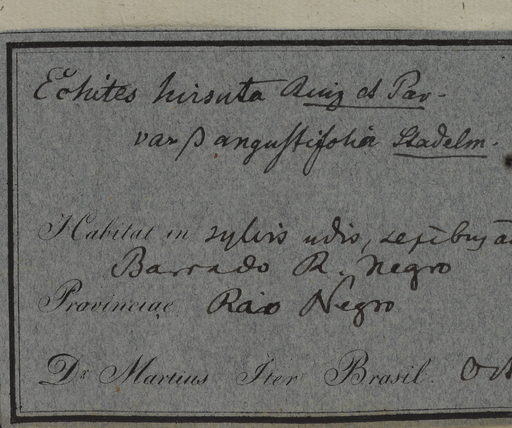 Echites hirsuta Ruiz et Pav.
var β angustifolia Stadelm.
Habitat in sylvis udis, sepibus
Barra do R. Negro
Provinciae Rio Negro
Dr Martius Iter Brasil. Oct